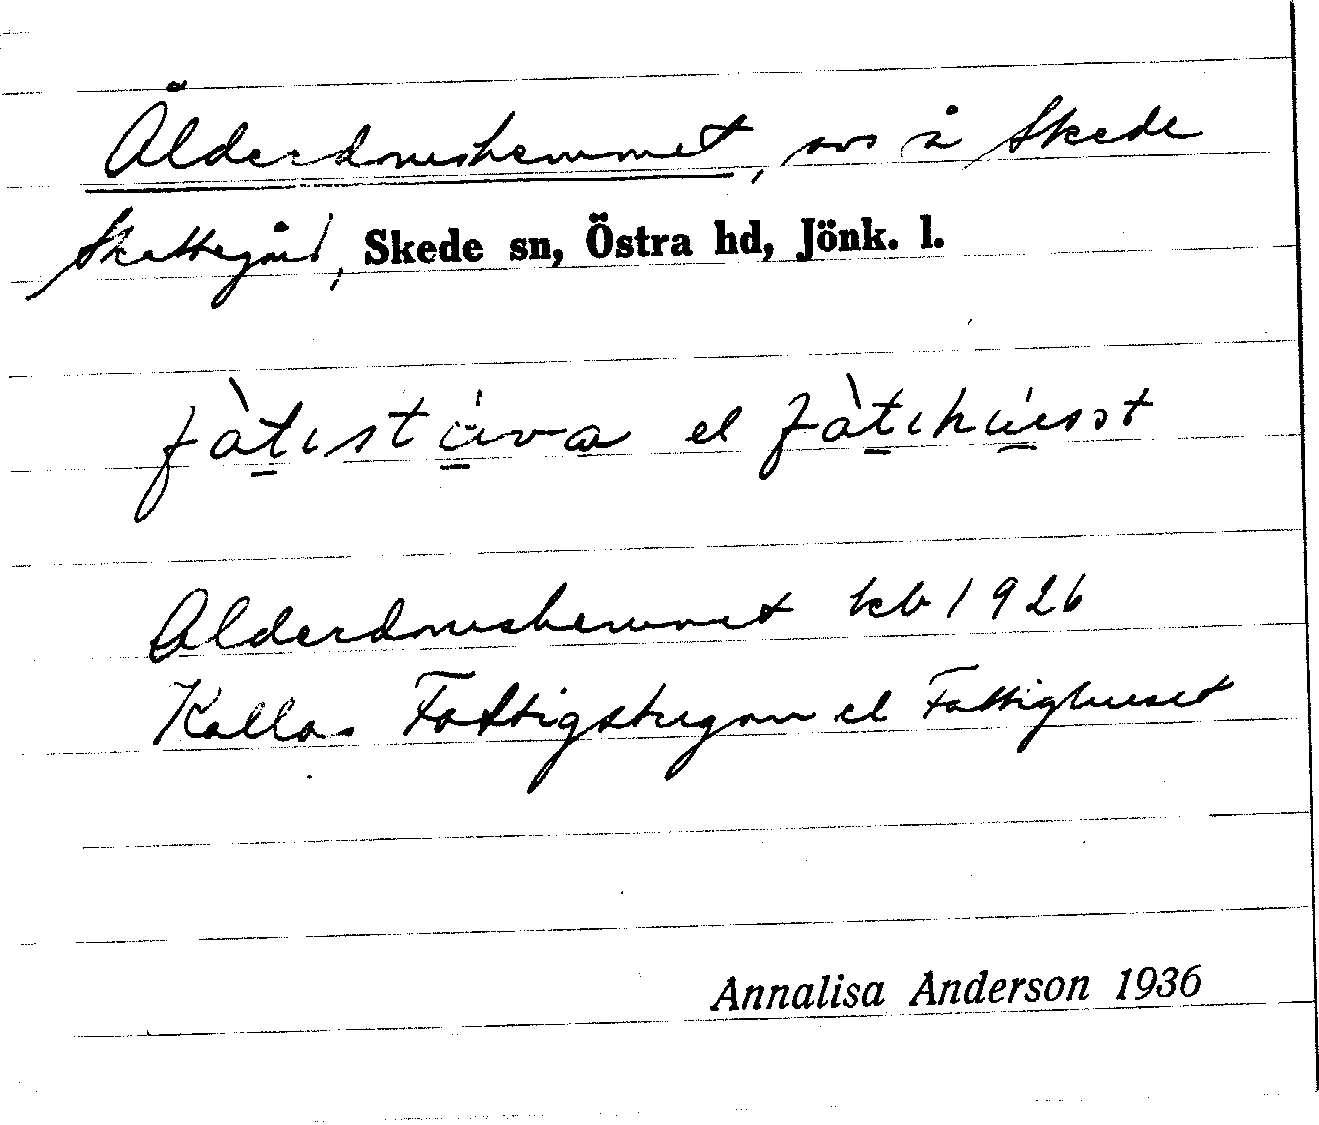 Ålderdomshemmet, avs å Skede
Skattegård, Skede sn, Östra hd, Jönk. l.
fàtistúva el fàtihúsət
Ålderdomshemmet kb 1926
Kallas Fattigstugan el Fattighuset
Annalisa Anderson 1936